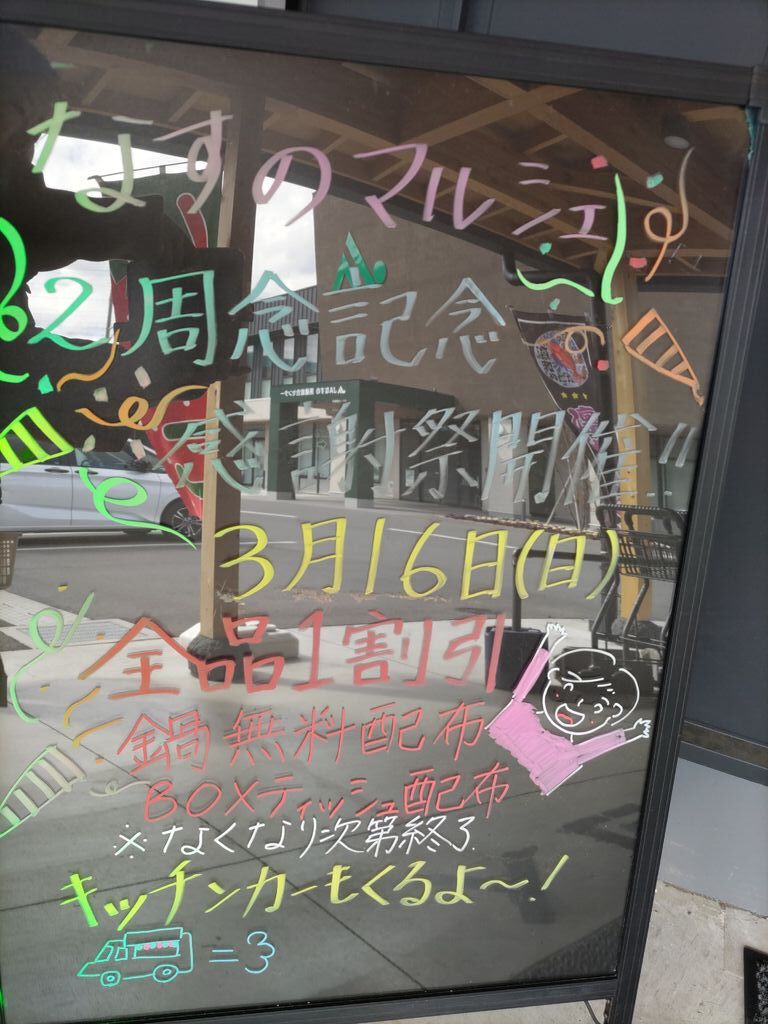 なすのマルシェ
2周念記念
感謝祭開催!!
3月16日(日)
全品1割引
鍋無料配布
BOXティッシュ配布
※なくなり次第終了
キッチンカーもくるよ～!
=3